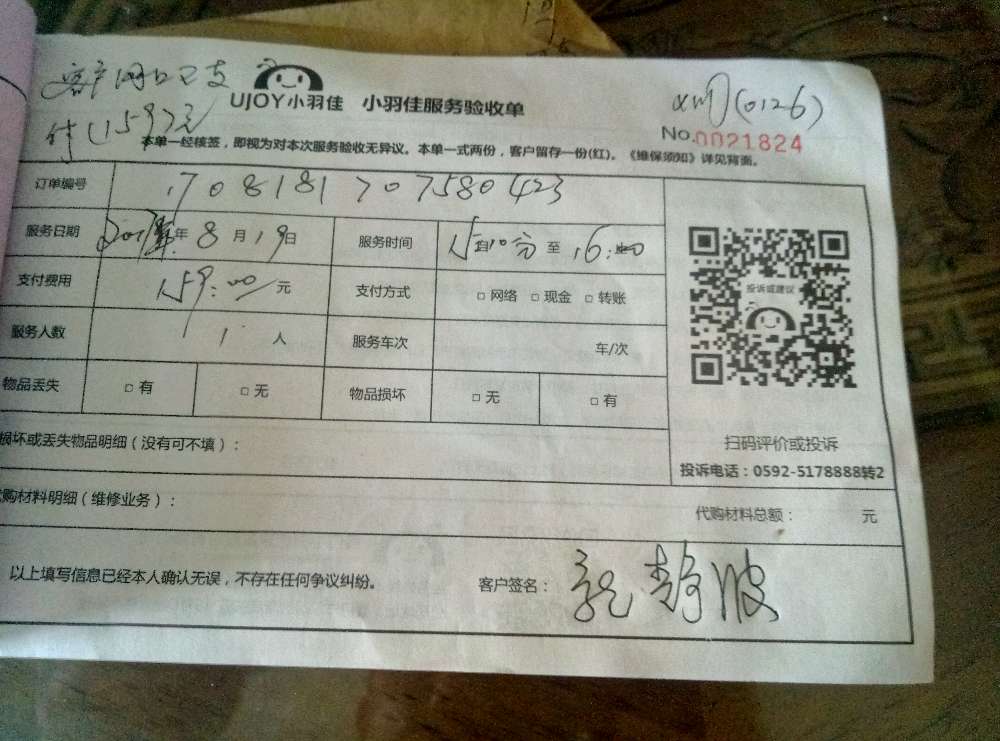 客户网上已支
付(159)元
UJOY小羽佳 小羽佳服务验收单
xm(0126)
No.0021824
本单一经核签，即视为对本次服务验收无异议。本单一式两份，客户留存一份(红)。《维保须知》详见背面。
订单编号 1708181707580423
服务日期 2017年8月19日 服务时间 15时10分至16:00
支付费用 159.00元 支付方式 □网络 □现金 □转账
投诉或建议
服务人数 1人 服务车次 车/次
物品丢失 □有 □无 物品损坏 □无 □有
损坏或丢失物品明细（没有可不填）：
扫码评价或投诉
投诉电话：0592-5178888转2
代购材料明细（维修业务）：
代购材料总额： 元
以上填写信息已经本人确认无误，不存在任何争议纠纷。
客户签名： 静波